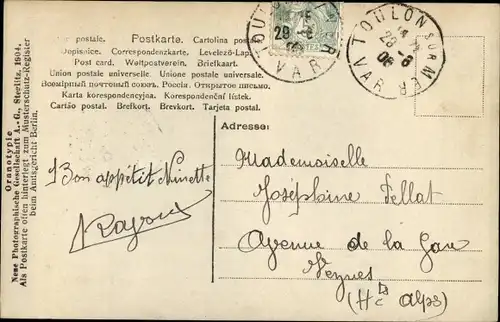 Carte postale. Postkarte. Cartolina postale.
Dopisnice. Correspondenzkarte. Levelező-Lap.
Post card. Weltpostverein. Briefkaart.
Union postale universelle. Unione postale universale.
Всемірный почтовый союзъ. Россія. Открытое письмо.
Karta korespondencyjna. Korespondenční lístek.
Cartão postal. Brefkort. Brevkort. Tarjeta postal.
TOULON SUR MER
VAR
28 -6
06
TOULON SUR MER
28 -6
06
VAR
Oranotypie
Neue Photographische Gesellschaft A.-G., Steglitz, 1904.
Als Postkarte offen hinterlegt zum Musterschutz-Register
beim Amtsgericht Berlin.
Adresse:
Bon appétit Ninette
Mademoiselle
Joséphine Pellat
Avenue de la Gare
Veynes
(Htes Alpes)